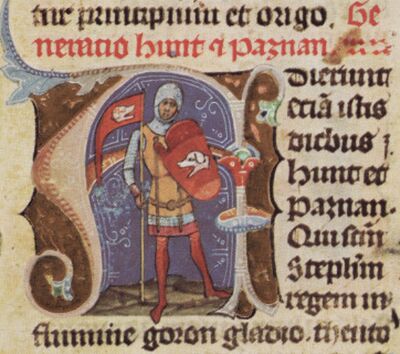 tur principium et origo. Ge
neracio hunt ⁊ paznan.
dierunt
eciã istis
diebus
hunt et
paznan.
Qui scm̃
Stephm̃
regem in
flumine goron gladio. theuto